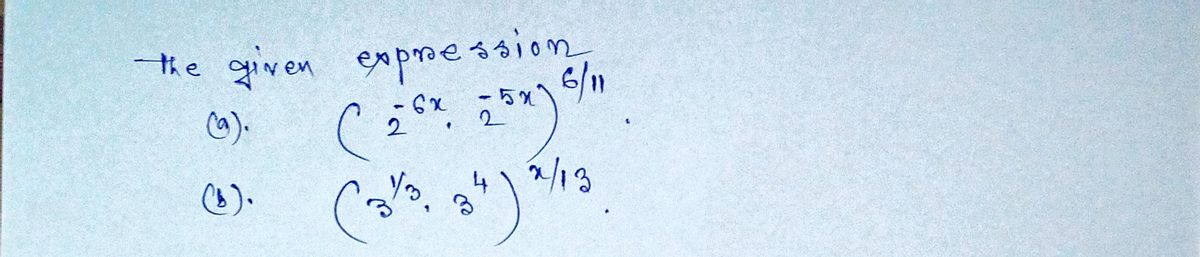 the given expression
(a). (2^{-6x}. 2^{-5x})^{6/11}.
(b). (3^{1/3}. 3^{4})^{x/13}.